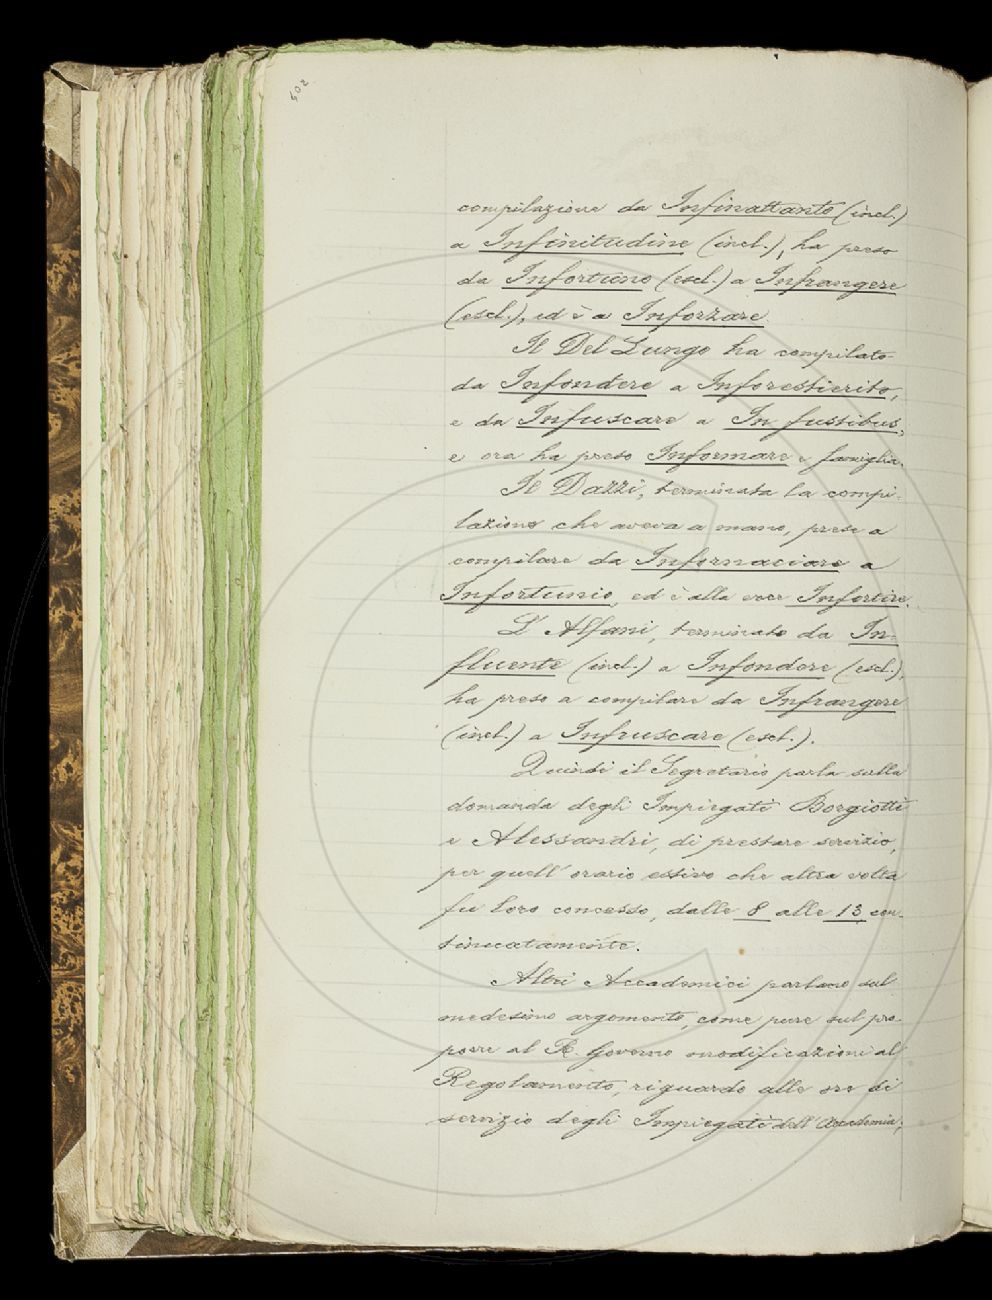 402
compilazione da Infinattanto (incl.)
a Infinitudine (incl.), ha preso
da Infortuno (escl.) a Infrangere
(escl.), ed è a Inforzare
Il Del Lungo ha compilato
da Infondere a Inforestierito,
e da Infuscare a In fustibus,
e ora ha preso Informare e famiglia.
Il Dazzi, terminata la compi-
lazione che aveva a mano, prese a
compilare da Infornaciare a
Infortunio, ed è alla voce Infortire.
L'Alfani, terminato da In-
fluente (incl.) a Infondere (escl.),
ha preso a compilare da Infrangere
(incl.) a Infruscare (escl.).
Quindi il Segretario parla sulla
domanda degli Impiegati Borgiotti
e Alessandri, di prestare servizio,
per quell'orario estivo che altra volta
fu loro concesso, dalle 8 alle 13 con-
tinuatamente.
Altri Accademici parlano sul
medesimo argomento, come pure sul pro-
porre al R. Governo modificazioni al
Regolamento, riguardo alle ore di
servizio degli Impiegati dell'Accademia;